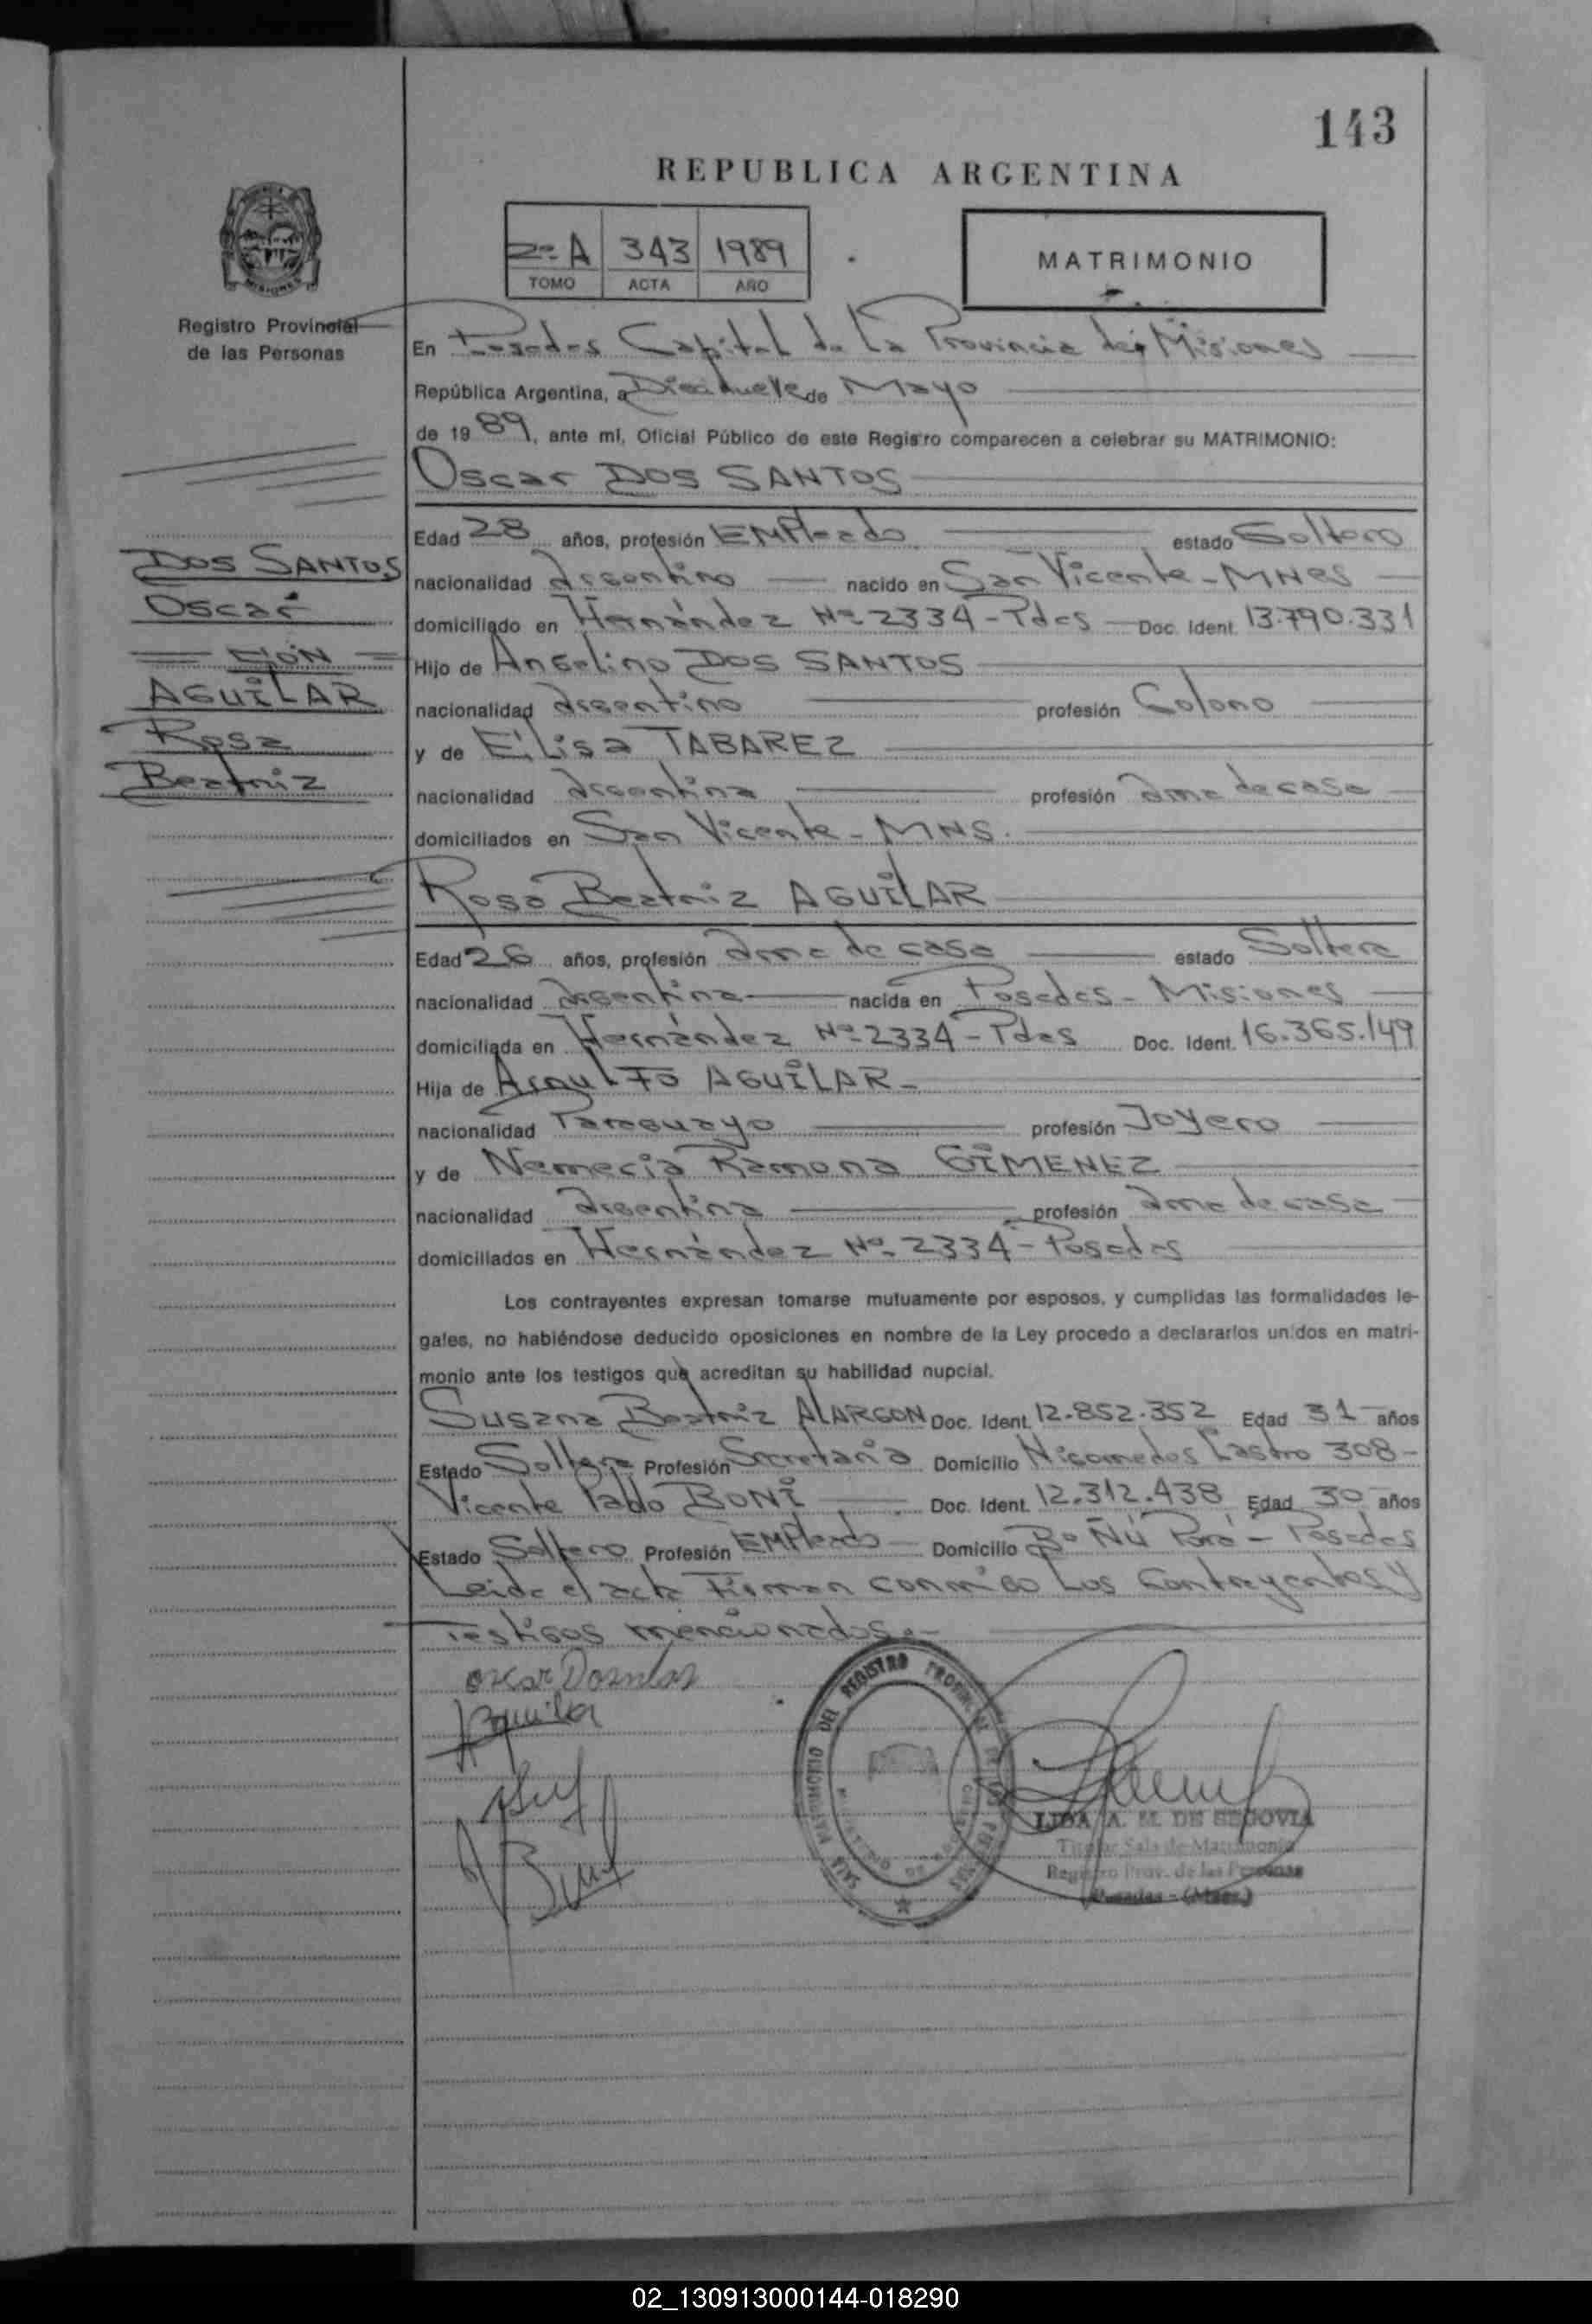 143
REPUBLICA ARGENTINA
2º A 343 1989
TOMO ACTA AÑO
MATRIMONIO
Registro Provincial
de las Personas
En Posadas Capital de La Provincia de Misiones
República Argentina, a Diecinueve de Mayo
de 1989, ante mí, Oficial Público de este Registro comparecen a celebrar su MATRIMONIO:
Oscar DOS SANTOS
Edad 28 años, profesión EMPleado estado Soltero
nacionalidad argentino nacido en San Vicente - MNes
domiciliado en Hernández Nº 2334 - Pdas Doc. Ident. 13.790.331
Hijo de Angelino DOS SANTOS
nacionalidad argentino profesión Colono
y de Elisa TABAREZ
nacionalidad argentina profesión ama de casa
domiciliados en San Vicente - MNS.
DOS SANTOS
Oscar
CON
AGUILAR
Rosa
Beatriz
Rosa Beatriz AGUILAR
Edad 26 años, profesión ama de casa estado Soltera
nacionalidad argentina nacida en Posadas - Misiones
domiciliada en Hernández Nº 2334 - Pdas Doc. Ident. 16.365.149
Hija de AGUILAR -
nacionalidad Paraguayo profesión Joyero
y de Nemecia Ramona GIMENEZ
nacionalidad argentina profesión ama de casa
domiciliados en Hernández Nº 2334 - Posadas
Los contrayentes expresan tomarse mutuamente por esposos, y cumplidas las formalidades le-
gales, no habiéndose deducido oposiciones en nombre de la Ley procedo a declararlos unidos en matri-
monio ante los testigos que acreditan su habilidad nupcial.
Susana Beatriz ALARCON Doc. Ident. 12.852.352 Edad 31 años
Estado Soltera Profesión Secretaria Domicilio Nicomedes Castro 308 -
Vicente Pablo BONI Doc. Ident. 12.312.438 Edad 30 años
Estado Soltero Profesión EMPleado Domicilio Bº Ñú Porá - Posadas
Leida el acta Firman conmigo Los Contrayentes y
Testigos mencionados.-
SALA MATRIMONIO DEL REGISTRO PROVINCIAL DE LAS PERSONAS
LIDA A. M. DE SEGOVIA
Titular Sala de Matrimonio
Registro Prov. de las Personas
Posadas - (Mnes.)
02_130913000144-018290